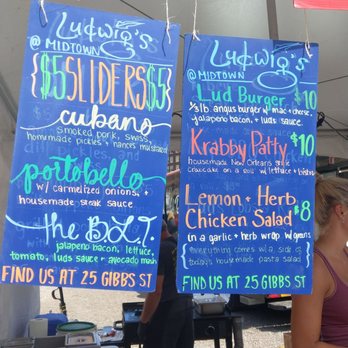 Ludwig's
@ MIDTOWN
{$5 SLIDERS $5}
cubano
smoked pork, swiss,
homemade pickles + nances mustard
portobello
w/ carmelized onions, +
housemade steak sauce
the B.L.T.
jalapeno bacon, lettuce,
tomato, luds sauce + avocado mash
FIND US AT 25 GIBBS ST
Ludwig's
@ MIDTOWN
Lud Burger $10
1/2 lb angus burger w/ mac + cheese,
jalapeno bacon, + luds sauce.
Krabby Patty $10
housemade New Orleans style
crabcake on a roll w/ lettuce +
Lemon + Herb
Chicken Salad $8
in a garlic + herb wrap w/ greens
{everything comes w/ a side of
today's housemade pasta salad}
FIND US AT 25 GIBBS ST